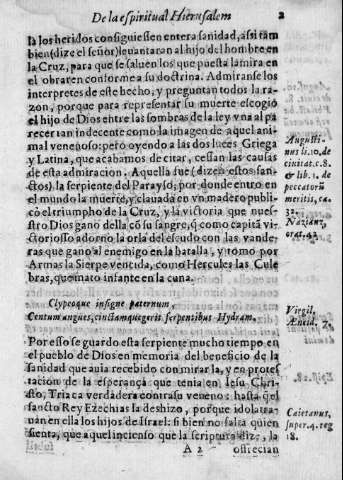 De la espiritual Hierusalem 2
la los heridos consiguiessen entera sanidad, assi tam
bien (dize el señor) leuantaran al hijo del hombre en
la Cruz, para que se saluen los que puesta la mira en
el obraren conforme a su doctrina. Admiranse los
interpretes de este hecho, y preguntan todos la ra-
zon, porque para representar su muerte escogio
el hijo de Dios entre las sombras de la ley vna al pa
recer tan indecente como la imagen de aquel ani-
mal venenoso: pero oyendo a las dos luces Griega
y Latina, que acabamos de citar, cessan las causas
de esta admiracion. Aquella fue (dizen estos san-
ctos) la serpiente del Parayso, por donde entro en
el mundo la muerte, y clauada en vn madero publi-
cò el triumpho de la Cruz, y la victoria que nues-
tro Dios gano della cõ su sangre, q̃ como capitã vi-
ctorioso adorno la orla del escudo con las vande-
ras que gano al enemigo en la batalla, y tomo por
Armas la Sierpe vencida, como Hercules las Cule
bras, que mato infante en la cuna.
Clypeoque insigne paternum,
Centum angues, cinctamque gerit serpentibus Hydram.
Por esso se guardo esta serpiente mucho tiempo en
el pueblo de Dios en memoria del beneficio de la
sanidad que auia recebido con mirarla, y en protes-
tacion de la esperança que tenia en Iesu Chri-
sto, Triaca verdadera contra su veneno: hasta q̃ el
sancto Rey Ezechias la deshizo, porque idolatra-
uan en ella los hijos de Israel: si bien no falta quien
sienta, que aquel incienso que la scriptura dize, la
A 2 offrecian
Augusti-
nus li. 10. de
ciuitat. c. 8.
& lib. 1. de
peccatorũ
meritis, ca.
32.
Nazianz.
orat. 42.
Virgil.
Æneid. 7.
Caietanus,
super 4. reg
18.